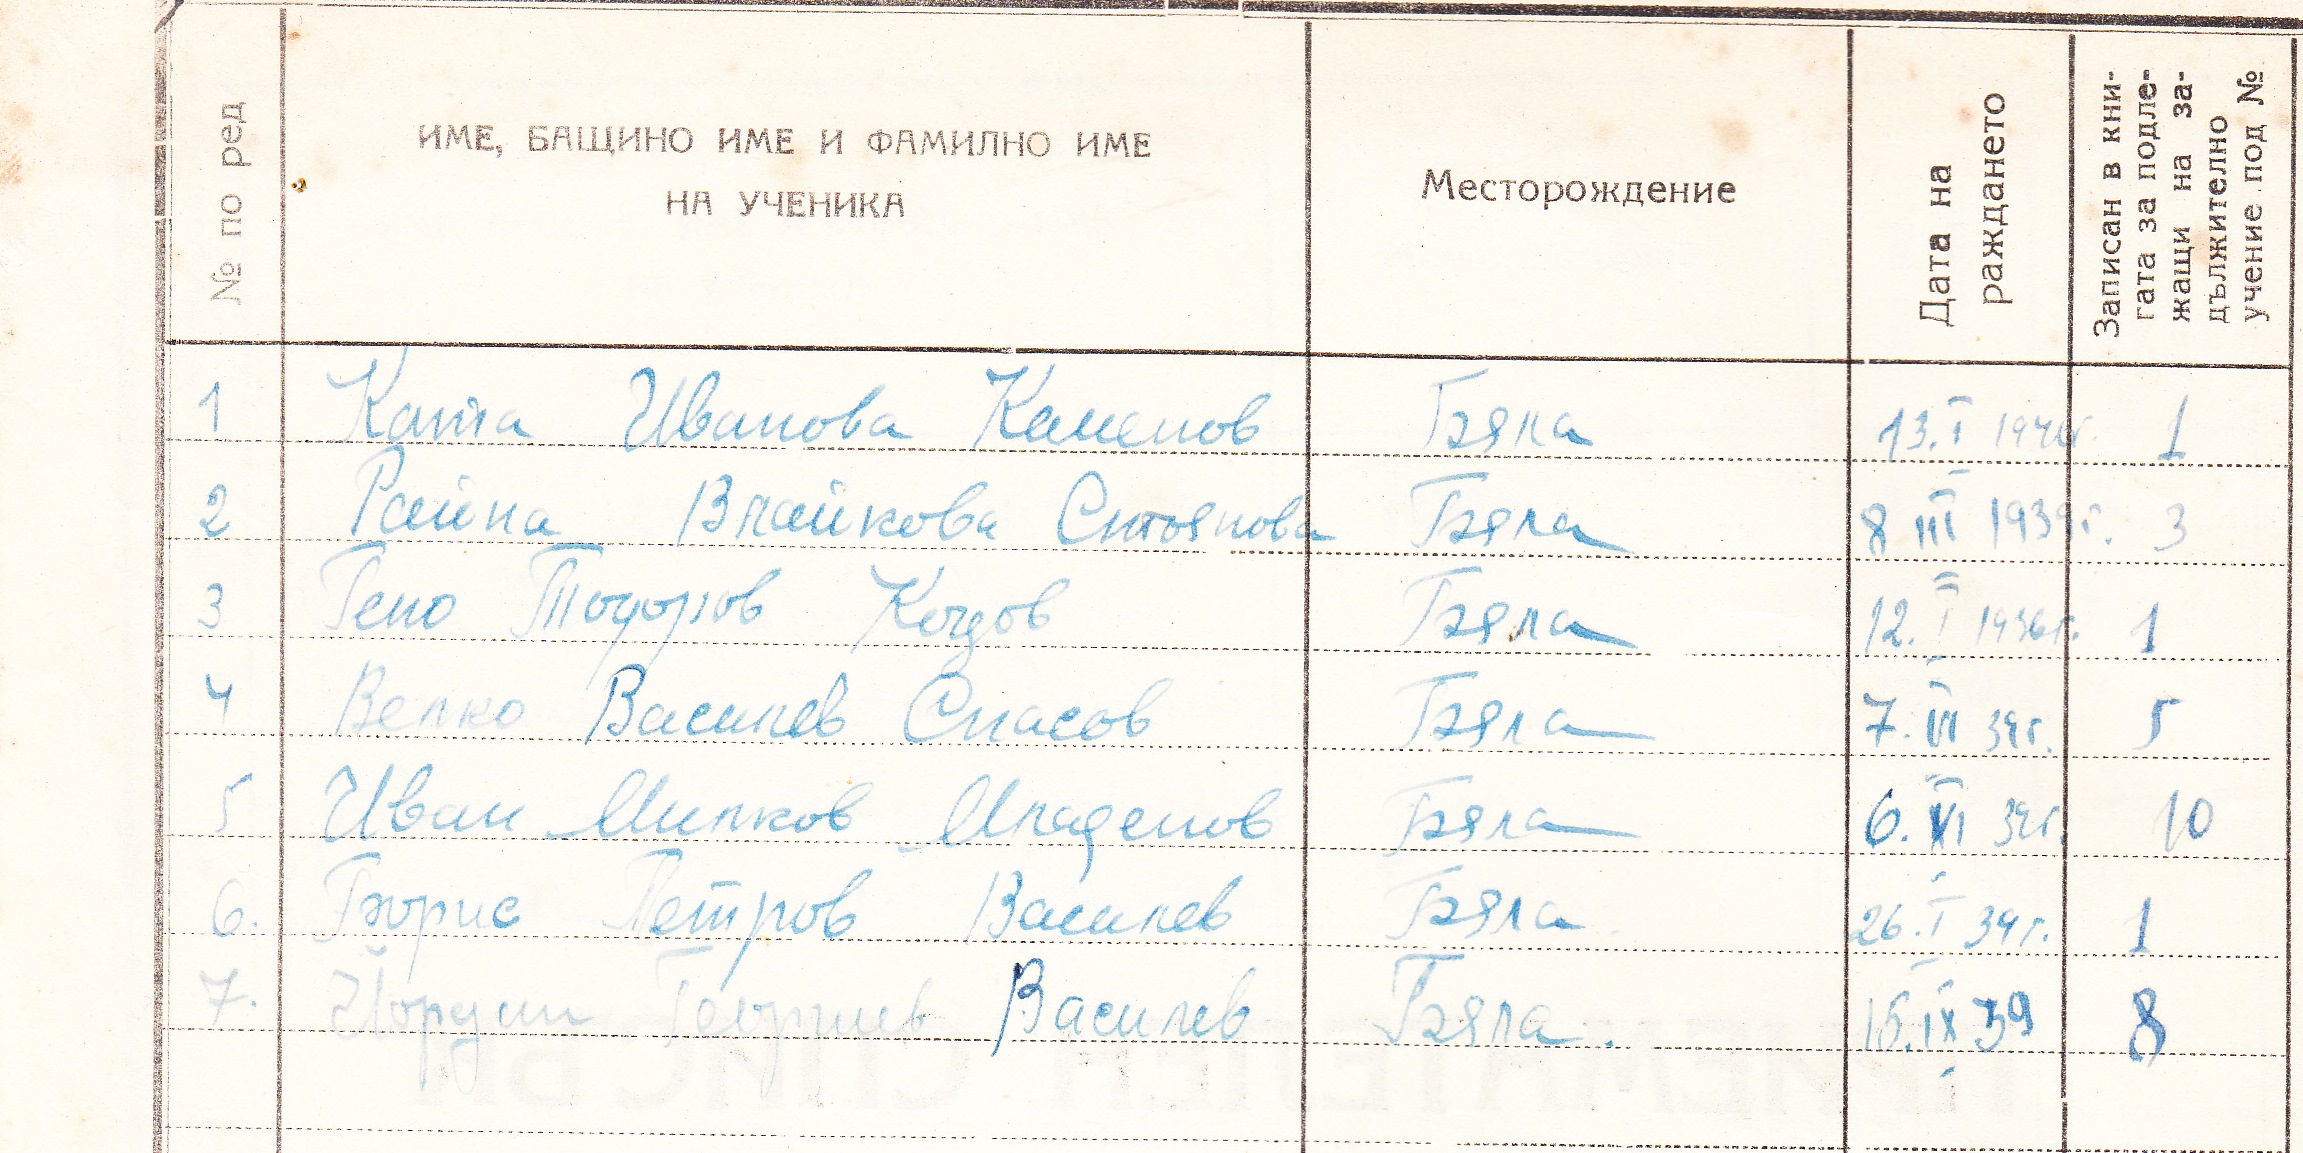 № по ред
ИМЕ, БАЩИНО ИМЕ И ФАМИЛНО ИМЕ
НА УЧЕНИКА
Месторождение
Дата на
раждането
Записан в кни-
гата за подле-
жащи на за-
дължително
учение под №
1 Катя Иванова Каменов Бяла 13. I 1940г. 1
2 Райна Влайкова Стоянова Бяла 8 III 1939г. 3
3 Гено Тодоров Бяла 12. I 1936г. 1
4 Велко Василев Спасов Бяла 7. 39г. 5
5 Иван Милков Младенов Бяла 6. 39г. 10
6. Борис Петров Василев Бяла 26. I 39г. 1
7. Йордан Георгиев Василев Бяла. 15. IX 39 8